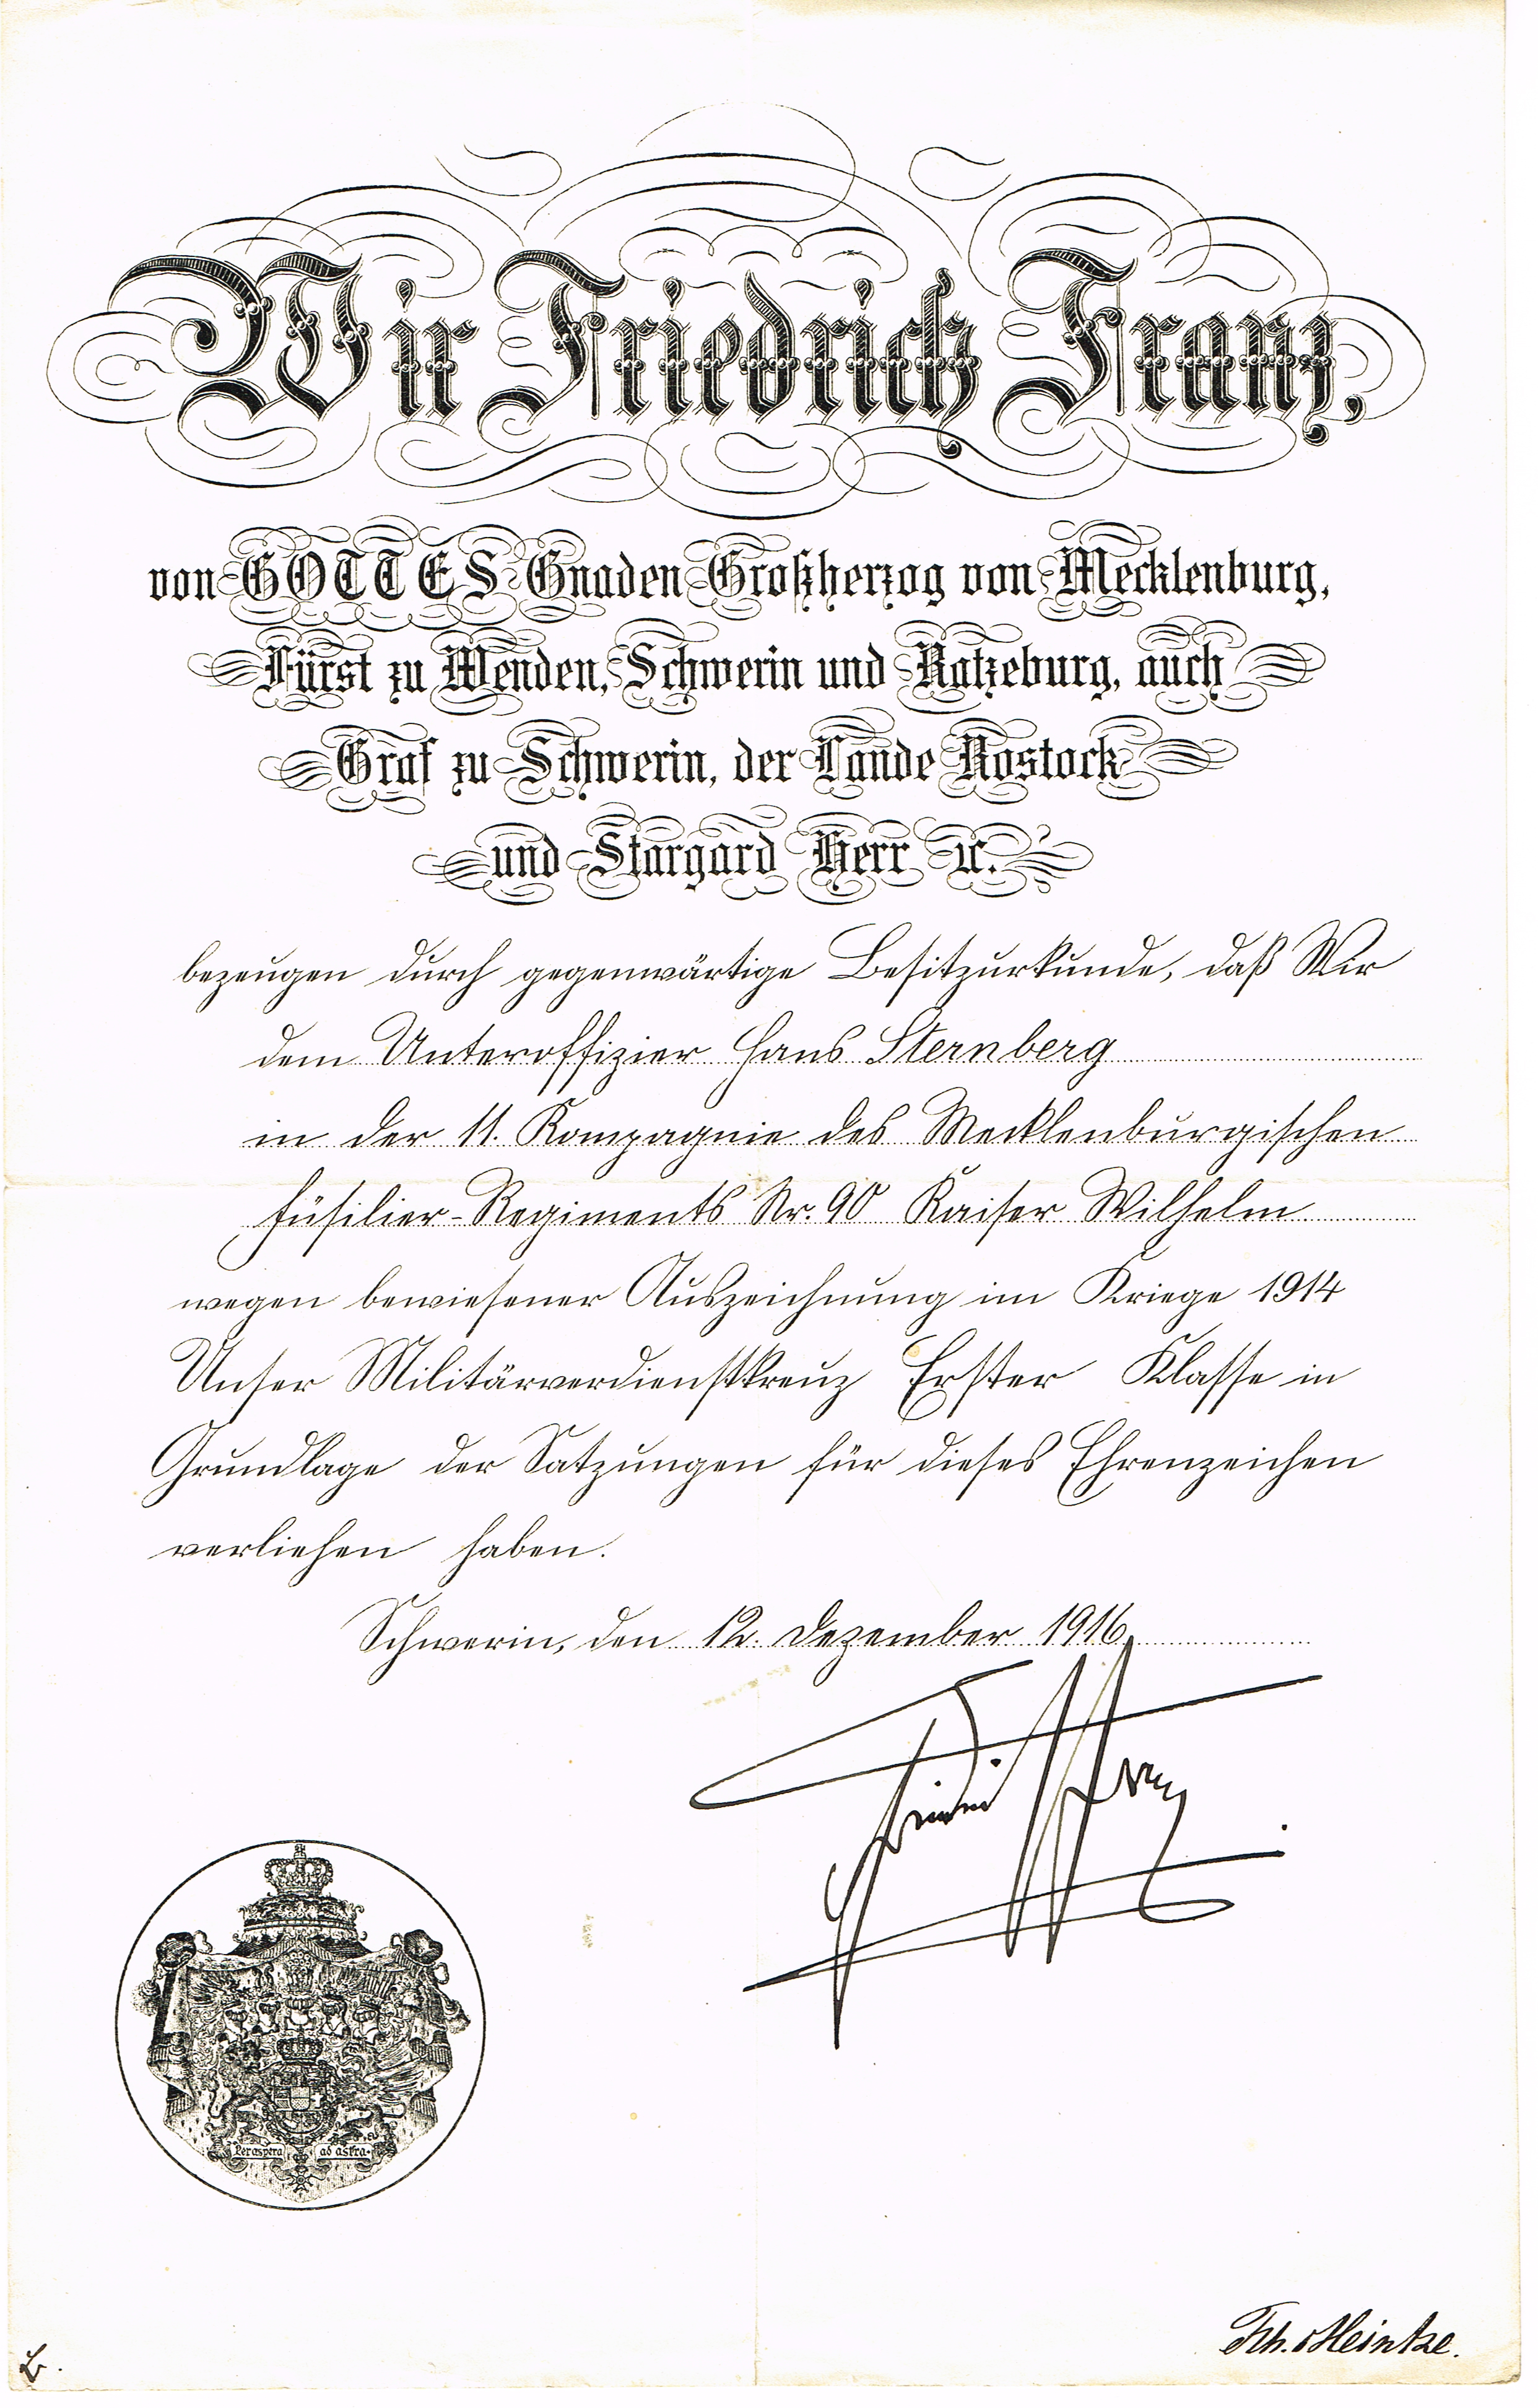 Wir Friedrich Franz,
von GOTTES Gnaden Großherzog von Mecklenburg,
Fürst zu Wenden, Schwerin und Ratzeburg, auch
Graf zu Schwerin, der Lande Rostock
und Stargard Herr ꝛc.
bezeugen durch gegenwärtige Besitzurkunde, daß Wir
dem Unteroffizier Hans Sternberg
in der 11. Kompagnie des Mecklenburgischen
Füsilier-Regiments Nr. 90 Kaiser Wilhelm
wegen bewiesener Auszeichnung im Kriege 1914
Unser Militärverdienstkreuz Erster Klasse in
Grundlage der Satzungen für dieses Ehrenzeichen
verliehen haben.
Schwerin, den 12. Dezember 1916.
Friedrich Franz
Per aspera ad astra.
Heintze.